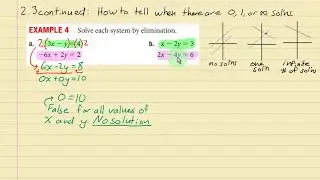 2.3 continued: How to tell when there are 0, 1, or ∞ solns
EXAMPLE 4 Solve each system by elimination.
a. 2(3x − y) = (4)2
−6x + 2y = 2
6x − 2y = 8
0x + 0y = 10
0 = 10
False for all values of
x and y. No solution
b. x − 2y = 3
2x − 4y = 6
no solns
one soln
infinite # of solns